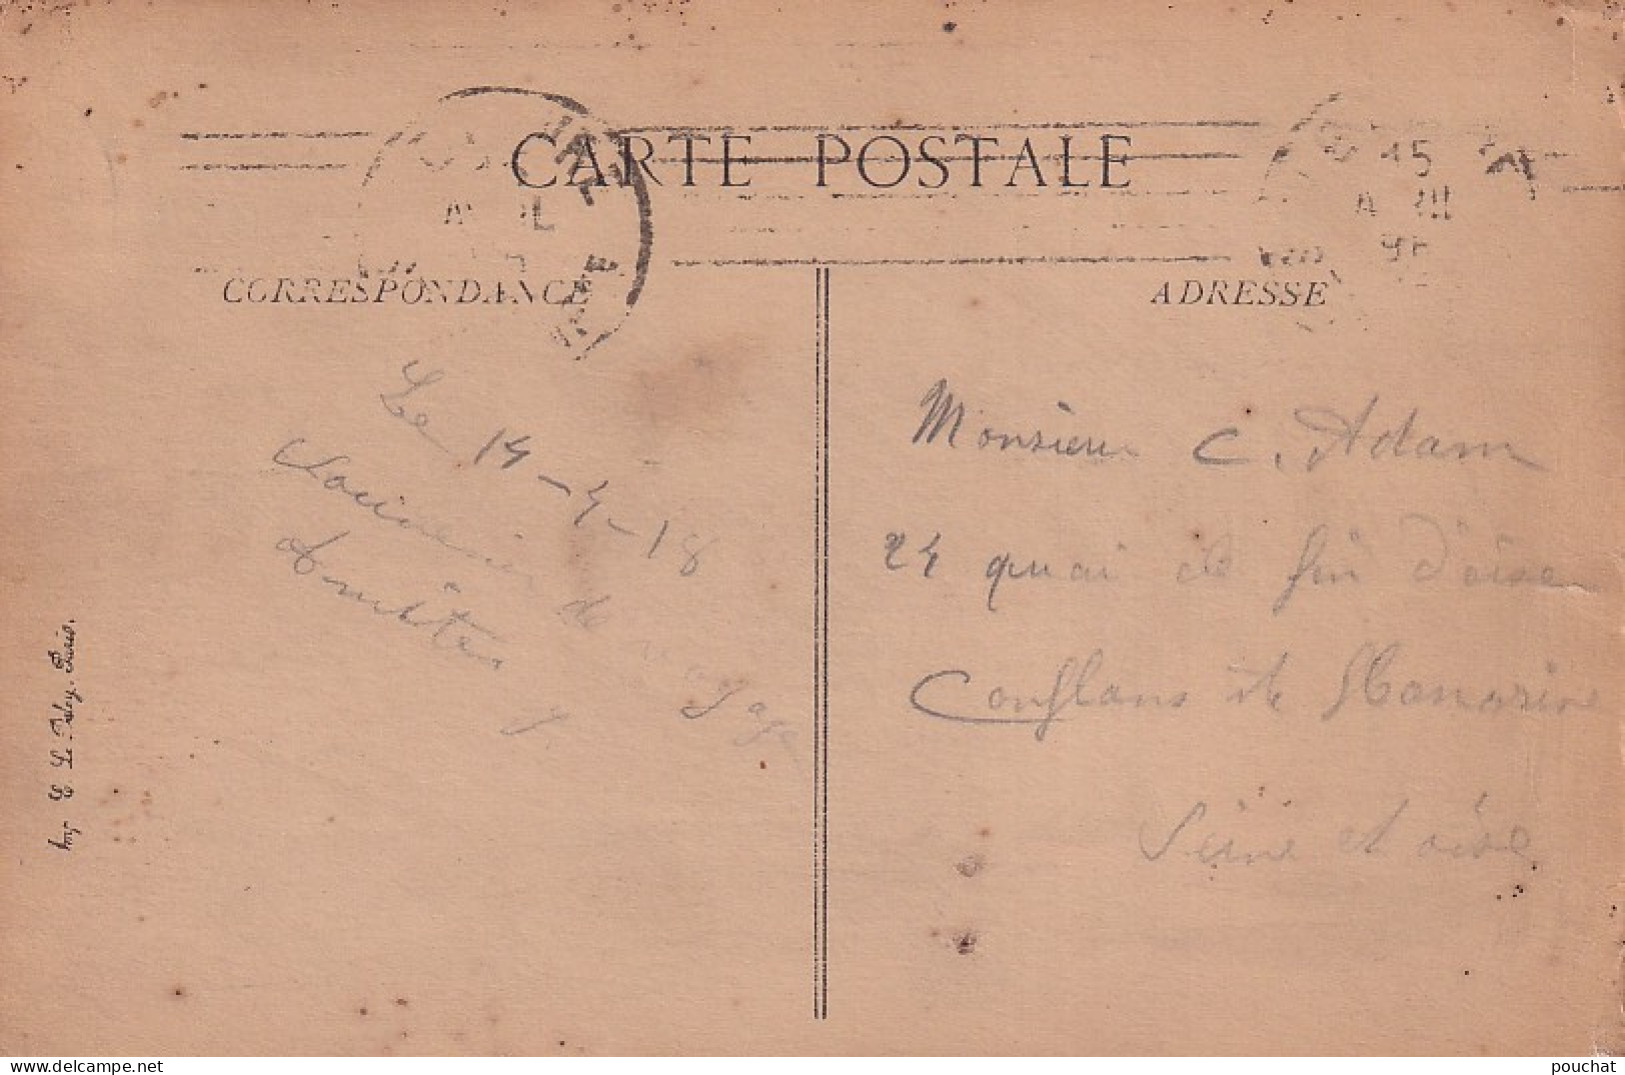 CARTE POSTALE
CORRESPONDANCE
ADRESSE
15
Le 14-4-18
Souvenir de voyage
Amitiés
Monsieur C. Adam
24 quai de fin d'oise
Conflans Ste Honorine
Seine et oise
Imp. E. Le Deley, Paris.
www.delcampe.net
pouchat